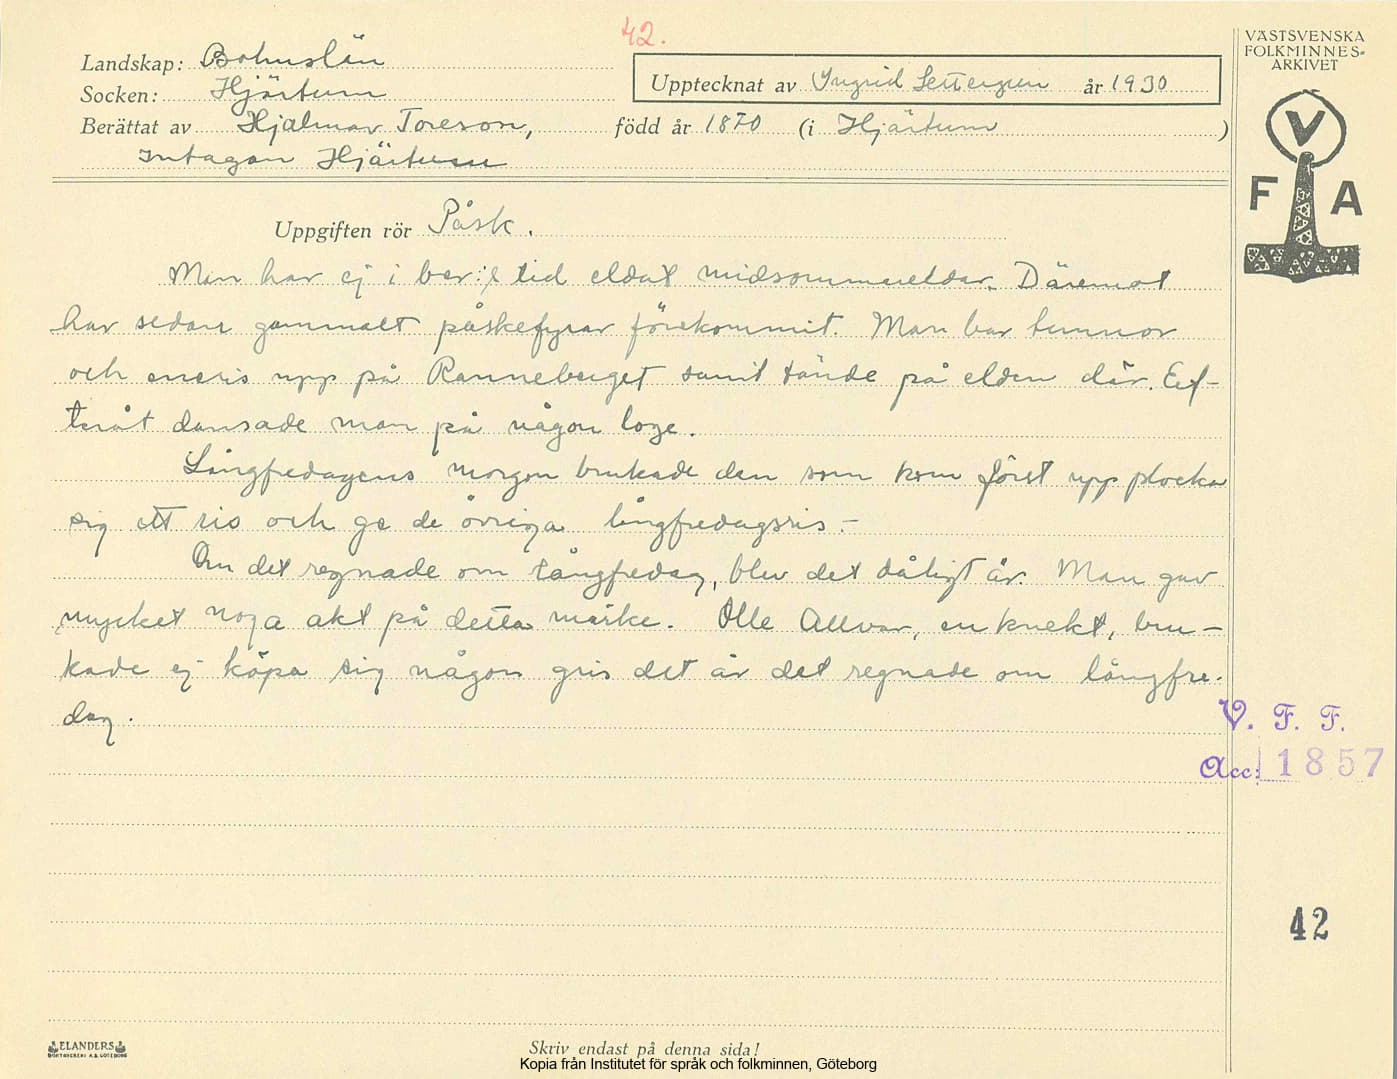 42.
Landskap: Bohuslän
Socken: Hjärtum
Upptecknat av Ingrid Settergren år 1930
Berättat av Hjalmar Toreson, född år 1870 (i Hjärtum)
Intagan Hjärtum
Uppgiften rör Påsk.
Man har ej i ber:s tid eldat midsommareldar. Däremot
har sedan gammalt påskefyrar förekommit. Man bar tunnor
och eneris upp på Ranneberget samt tände på elden där. Eef-
teråt dansade man på någon loge.
Långfredagens morgon brukade den som kom först upp plocka
sig ett ris och ge de övriga långfredagsris.-
Om det regnade om långfredag, blev det dåligt år. Man gav
mycket noga akt på detta märke. Olle Allvar, en knekt, bru-
kade ej köpa sig någon gris det år det regnade om långfre-
dag.
VÄSTSVENSKA
FOLKMINNES-
ARKIVET
V
F A
V. F. F.
Acc: 1857
42
ELANDERS
BOKTRYCKERI A.B. GÖTEBORG
Skriv endast på denna sida!
Kopia från Institutet för språk och folkminnen, Göteborg